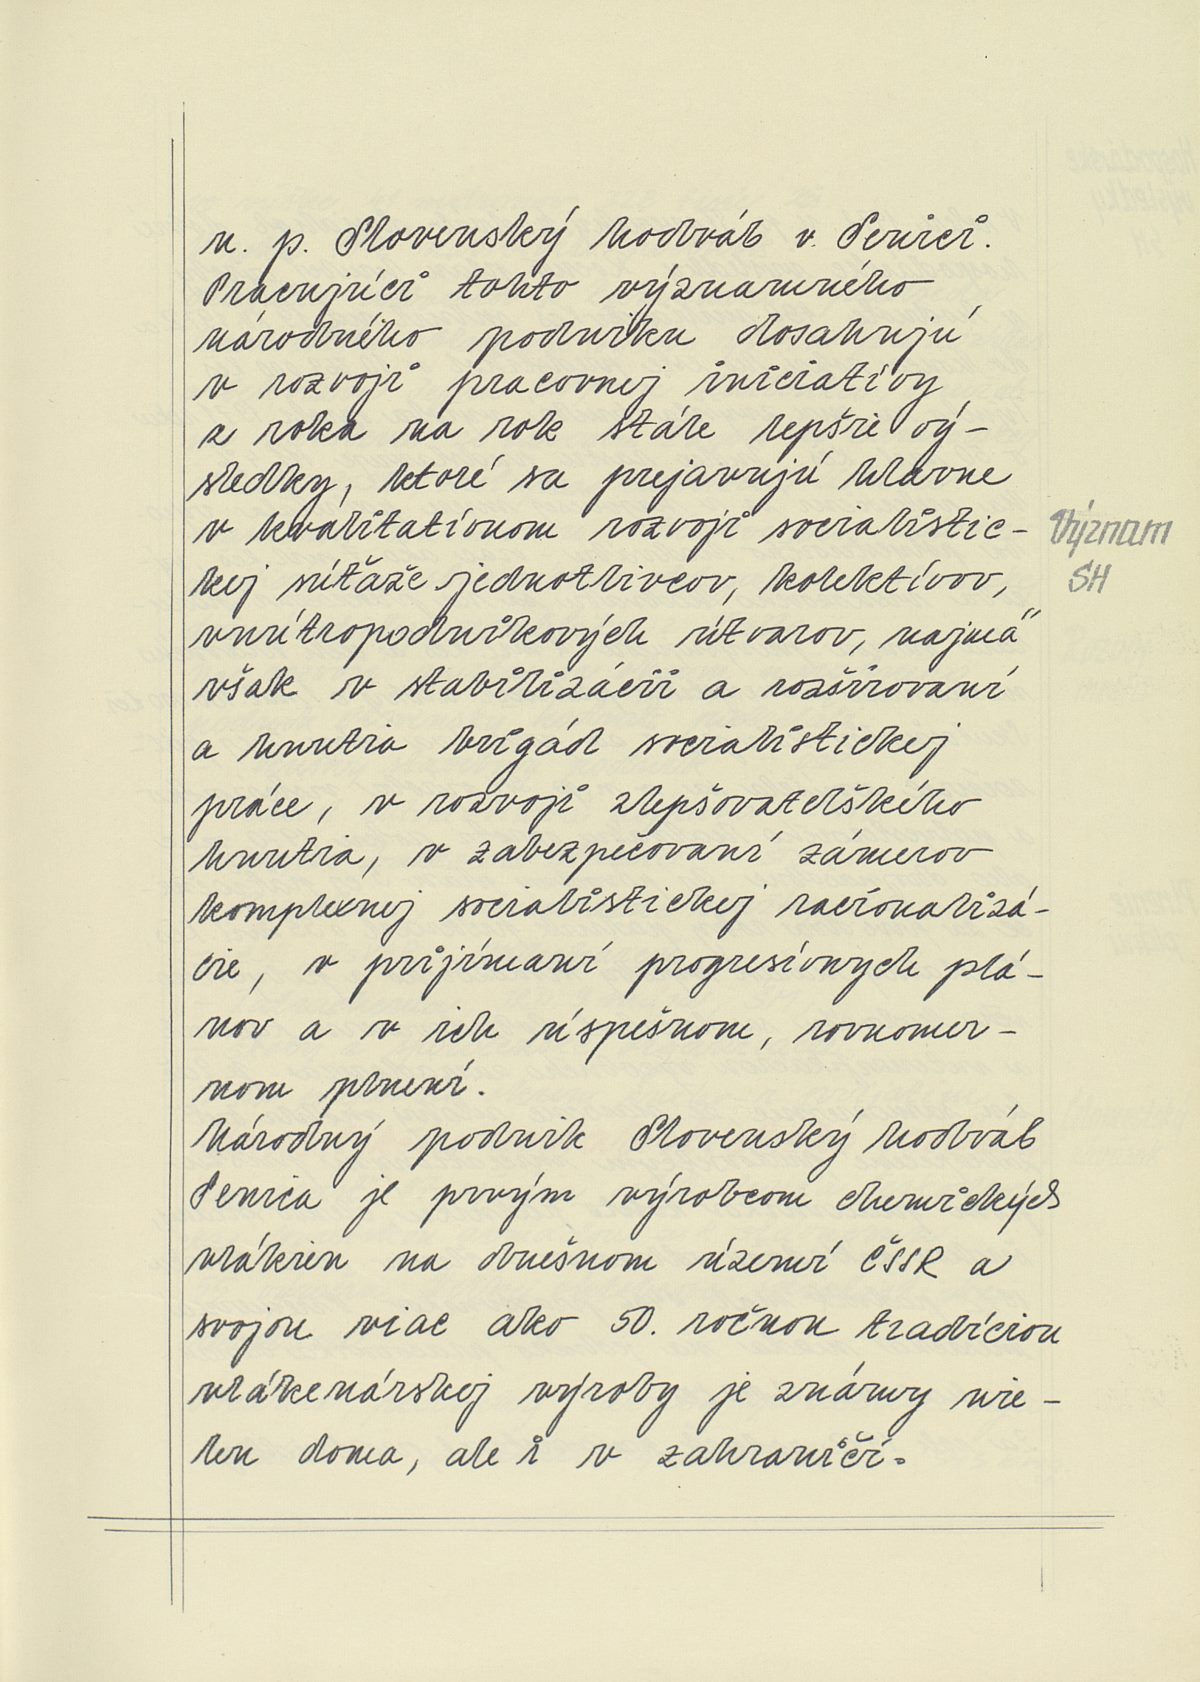 n. p. Slovenský hodváb v Senici.
Pracujúci tohto významného
národného podniku dosahujú
v rozvoji pracovnej iniciatívy
z roka na rok stále lepšie vý-
sledky, ktoré sa prejavujú hlavne
v kvalitatívnom rozvoji socialistic-
kej súťaže jednotlivcov, kolektívov,
vnútropodnikových útvarov, najmä
však v stabilizácii a rozširovaní
a hnutia brigád socialistickej
práce, v rozvoji zlepšovateľského
hnutia, v zabezpečovaní zámerov
komplexnej socialistickej racionalizá-
cie, v prijímaní progresívnych plá-
nov a v ich úspešnom, rovnomer-
nom plnení.
Národný podnik Slovenský hodváb
Senica je prvým výrobcom chemických
vlákien na dnešnom území ČSSR a
svojou viac ako 50. ročnou tradíciou
vlákenárskej výroby je známy nie-
len doma, ale i v zahraničí.
Význam
SH